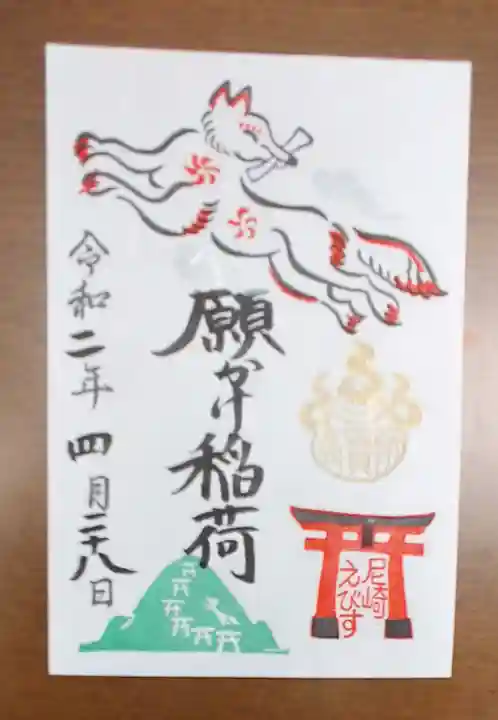 願かけ稲荷
令和二年四月二十八日
尼崎
えびす